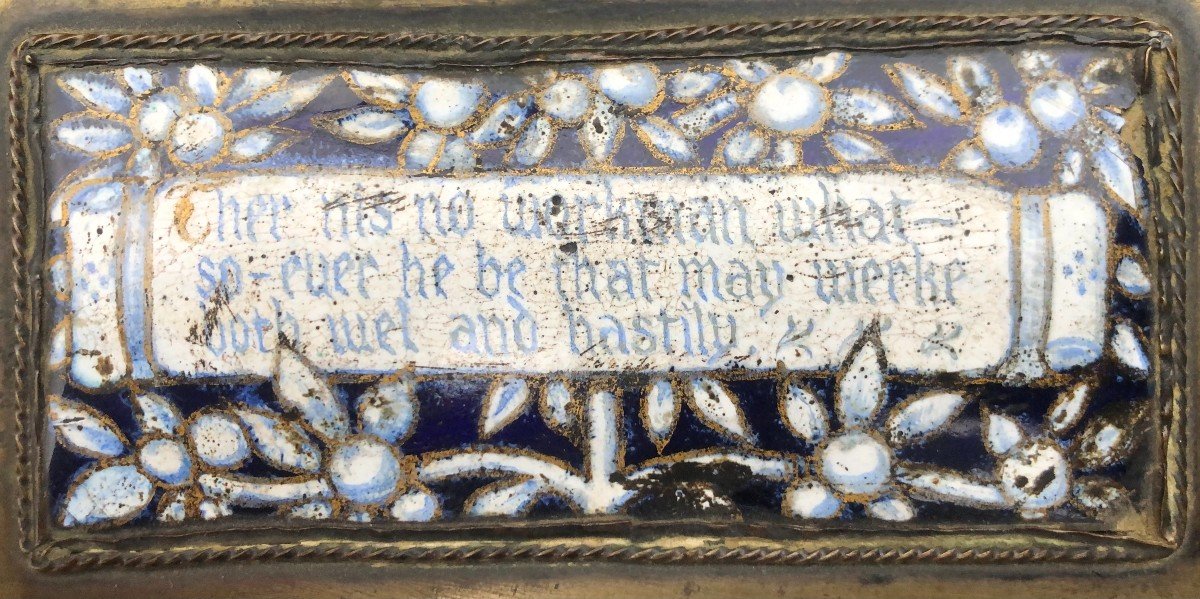 Ther nis no workman what-
so-ever he be that may werke
both wel and hastily.